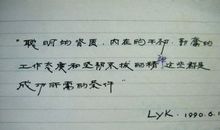 "聪明的资质、内在的干劲、勤奋的
工作态度和坚韧不拔的精神这些都是
成功所需的条件"
LyK. 1990.6.1